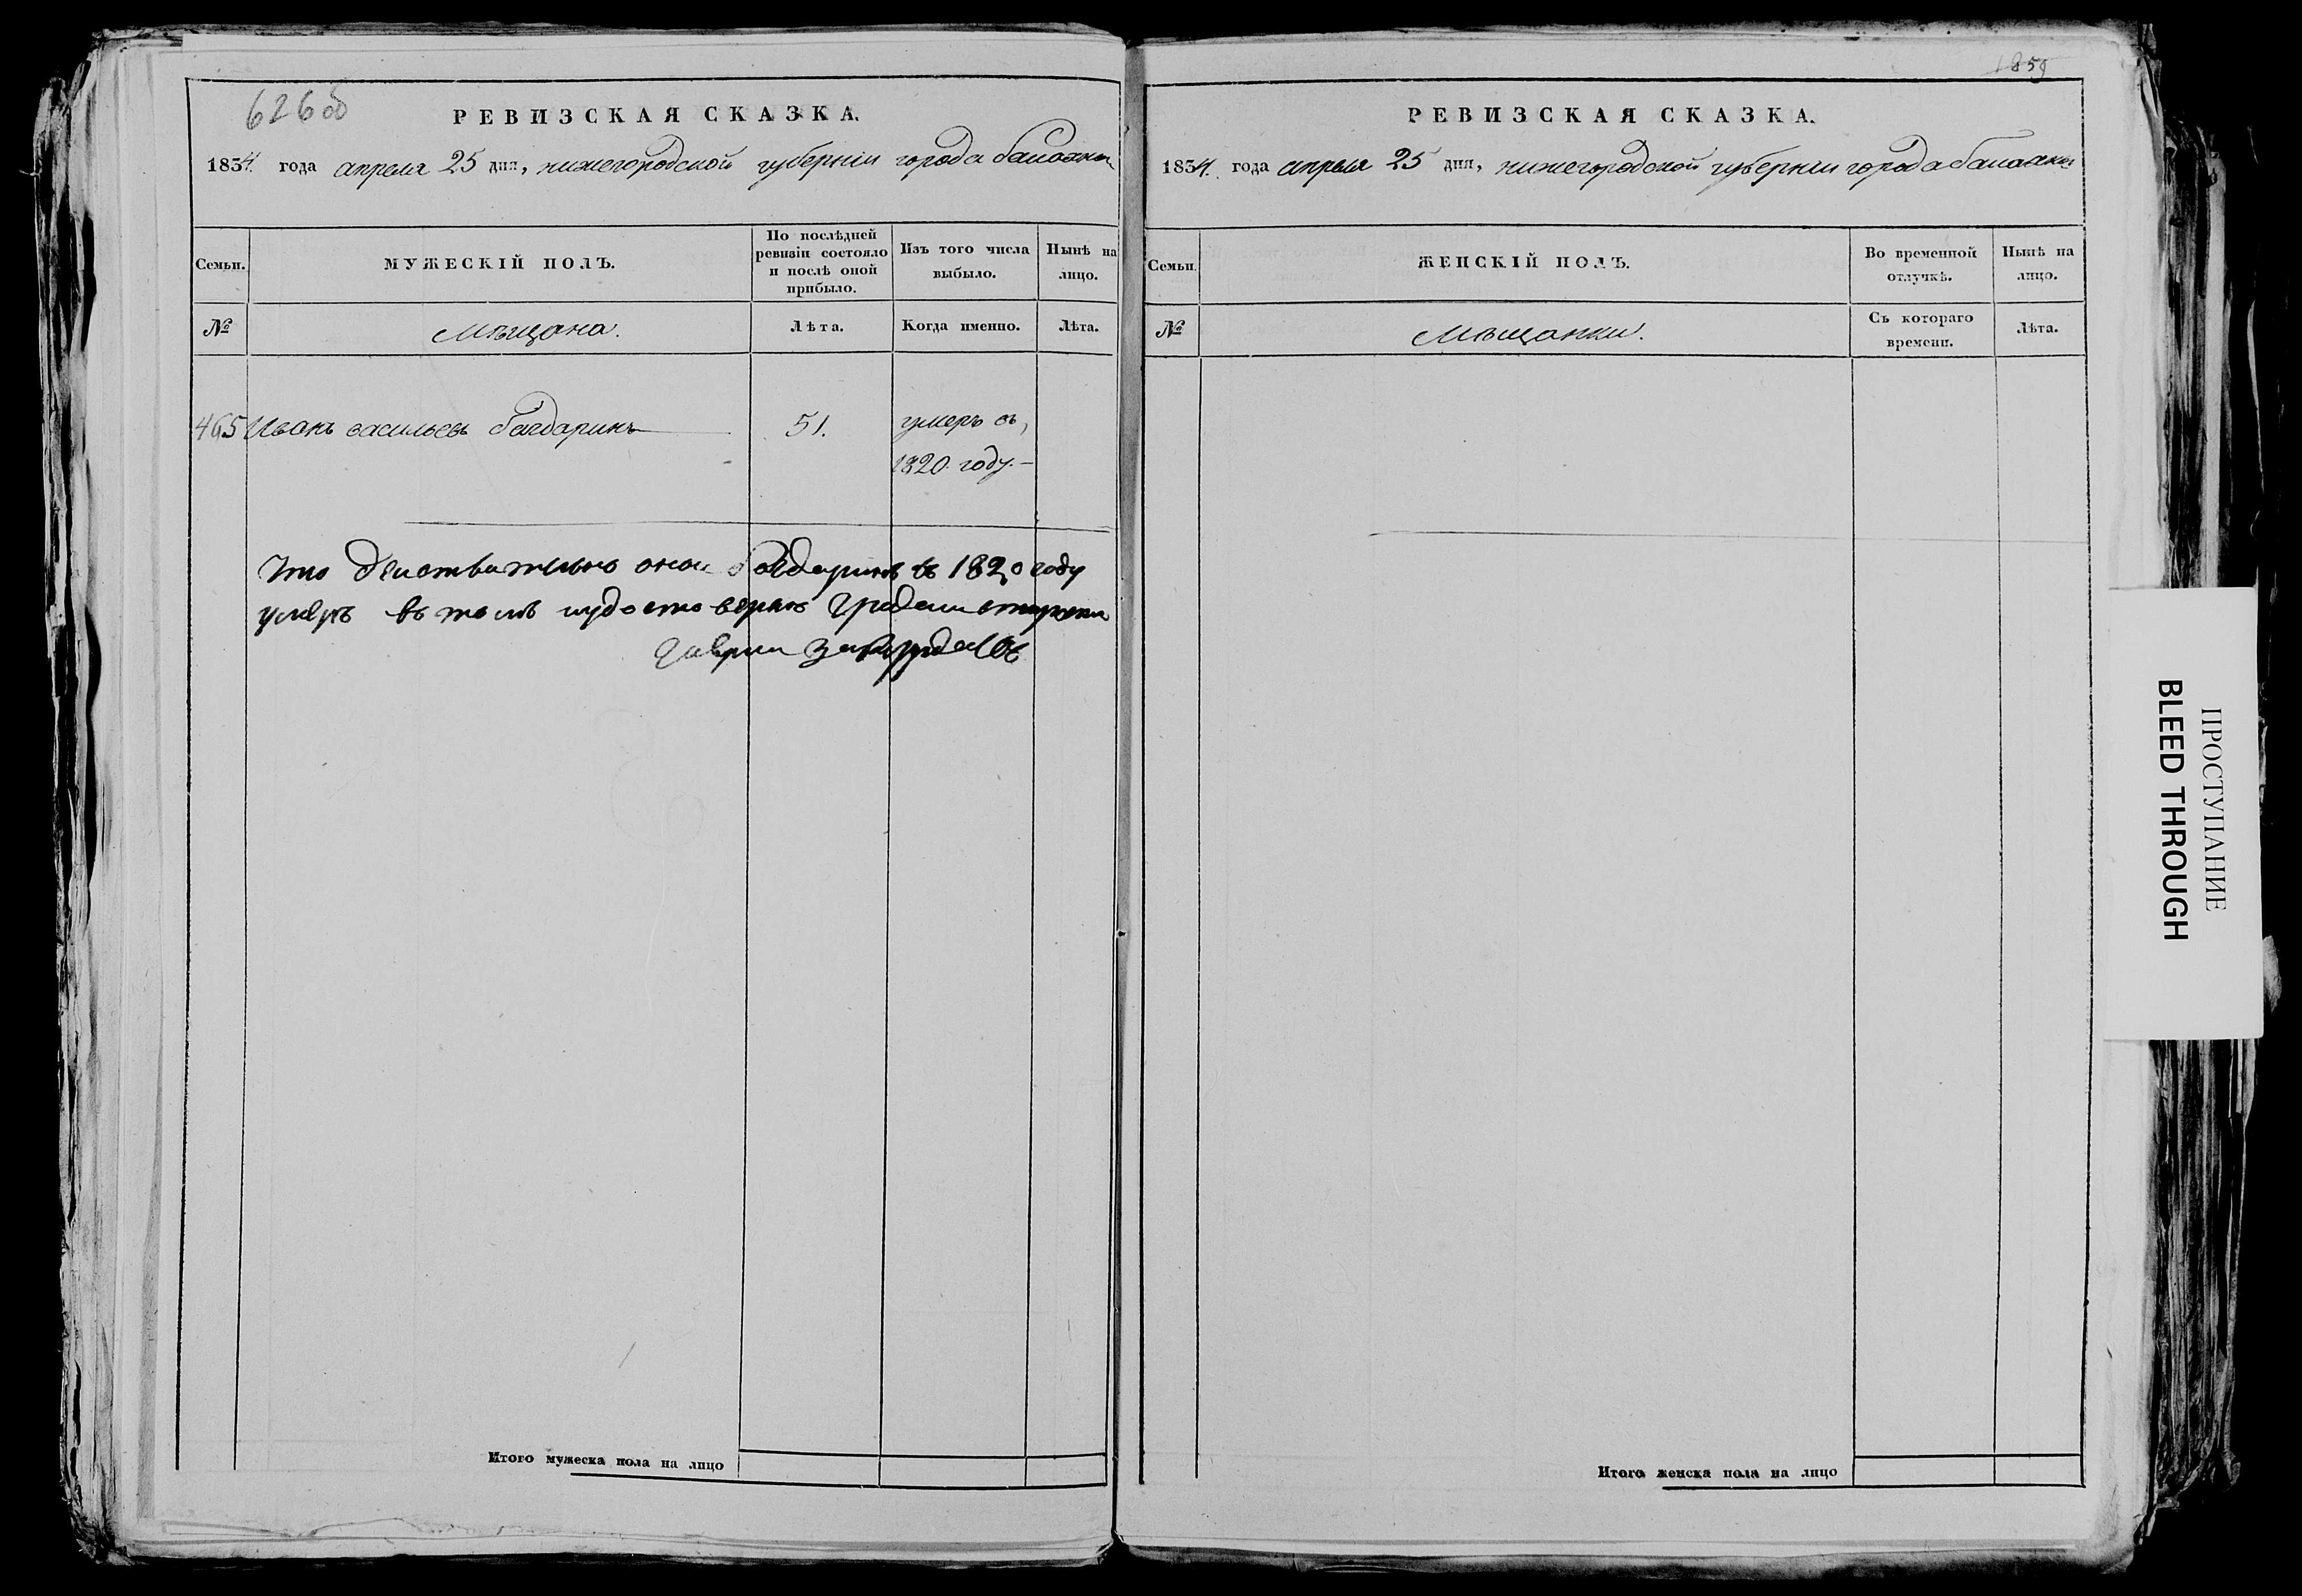 626 об
РЕВИЗСКАЯ СКАЗКА.
1834. года апреля 25 дня, нижегородской губерніи города балахны
Семьи.
МУЖЕСКІЙ ПОЛЪ.
По послѣдней
ревизіи состояло
и послѣ оной
прибыло.
Изъ того числа
выбыло.
Нынѣ на
лицо.
№
Мѣщана.
Лѣта.
Когда именно.
Лѣта.
465 Иванъ васильевъ
51.
умеръ въ
1820. году.
Что
въ 1820 году
умеръ въ томъ
Итого мужеска пола на лицо
1859
РЕВИЗСКАЯ СКАЗКА.
1834. года апреля 25 дня, нижегородской губерніи города балахны
Семьи.
ЖЕНСКІЙ ПОЛЪ.
Во временной
отлучкѣ.
Нынѣ на
лицо.
№
Мѣщанки.
Съ котораго
времени.
Лѣта.
Итого женска пола на лицо
ПРОСТУПАНИЕ
BLEED THROUGH